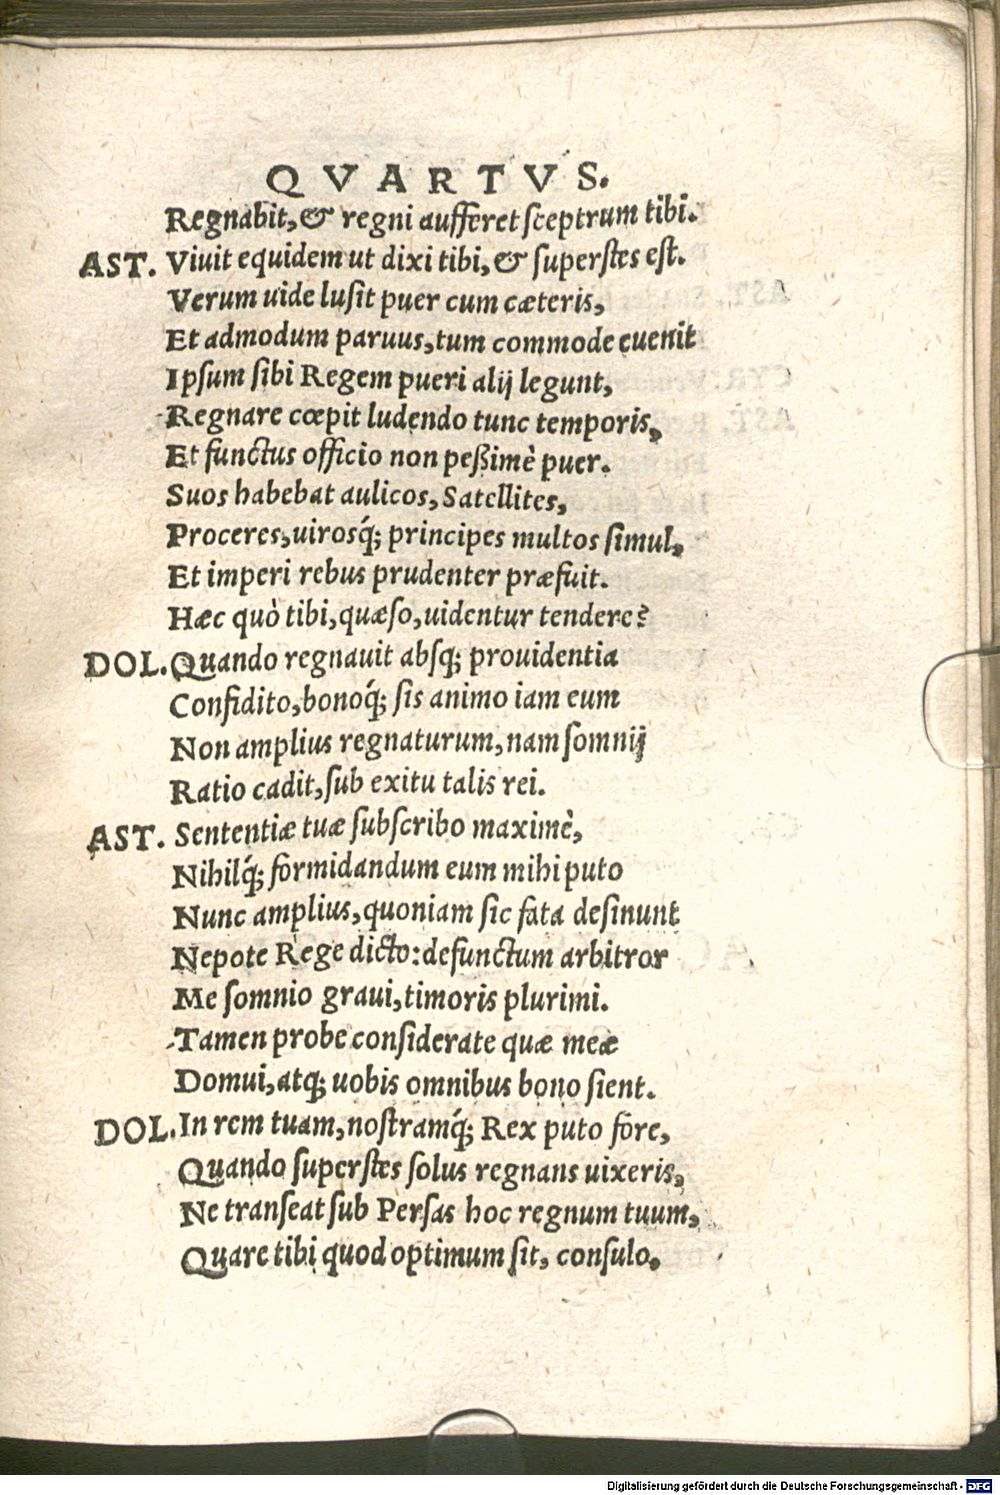 QVARTVS.
Regnabit, & regni aufferet sceptrum tibi.
AST. Viuit equidem ut dixi tibi, & superstes est.
Verum uide lusit puer cum cæteris,
Et admodum paruus, tum commode euenit
Ipsum sibi Regem pueri alij legunt,
Regnare cœpit ludendo tunc temporis,
Et functus officio non peßimè puer.
Suos habebat aulicos, Satellites,
Proceres, uirosq́; principes multos simul,
Et imperi rebus prudenter præfuit.
Hæc quò tibi, quæso, uidentur tendere?
DOL. Quando regnauit absq; prouidentia
Confidito, bonoq́; sis animo iam eum
Non amplius regnaturum, nam somnij
Ratio cadit, sub exitu talis rei.
AST. Sententiæ tuæ subscribo maximè,
Nihilq́; formidandum eum mihi puto
Nunc amplius, quoniam sic fata desinunt
Nepote Rege dicto: defunctum arbitror
Me somnio graui, timoris plurimi.
Tamen probe considerate quæ meæ
Domui, atq; uobis omnibus bono sient.
DOL. In rem tuam, nostramq́; Rex puto fore,
Quando superstes solus regnans uixeris,
Ne transeat sub Persas hoc regnum tuum,
Quare tibi quod optimum sit, consulo.
Digitalisierung gefördert durch die Deutsche Forschungsgemeinschaft - DFG